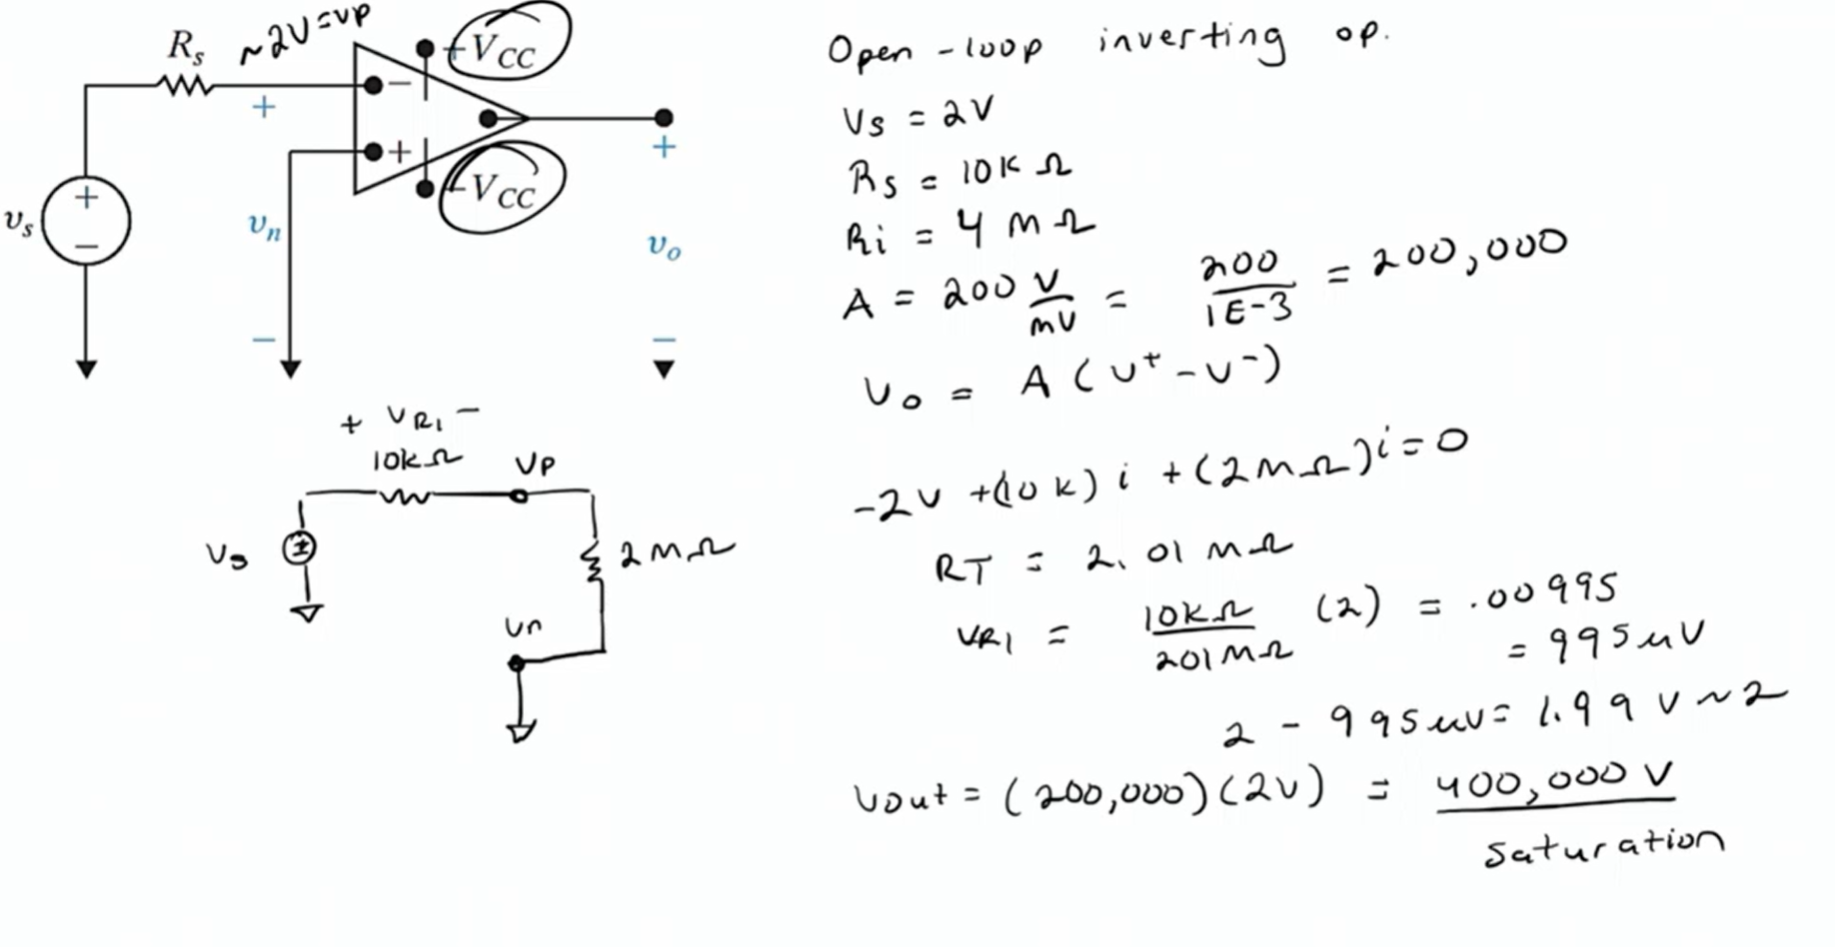 R_s ~2V=vp +V_CC
−
+
+
−V_CC
+
v_s + −
v_n
v_o
+
−
−
+ V_R1 −
10kΩ Vp
Vs ±
2MΩ
Vn
Open-loop inverting op.
Vs = 2V
Rs = 10K Ω
Ri = 4 MΩ
A = 200 V/mV = 200/1E-3 = 200,000
Vo = A (V⁺ - V⁻)
-2V +(10K) i + (2MΩ)i = 0
RT = 2.01 MΩ
VR1 = 10KΩ/201MΩ (2) = .00995
= 995 uV
2 - 995uV = 1.99 V ~ 2
Vout = (200,000)(2V) = 400,000 V
saturation